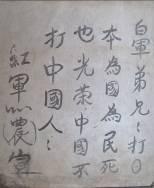 白軍弟兄:打日
本為國為民死
也光荣中國不
打中國人:
紅軍(農)宣